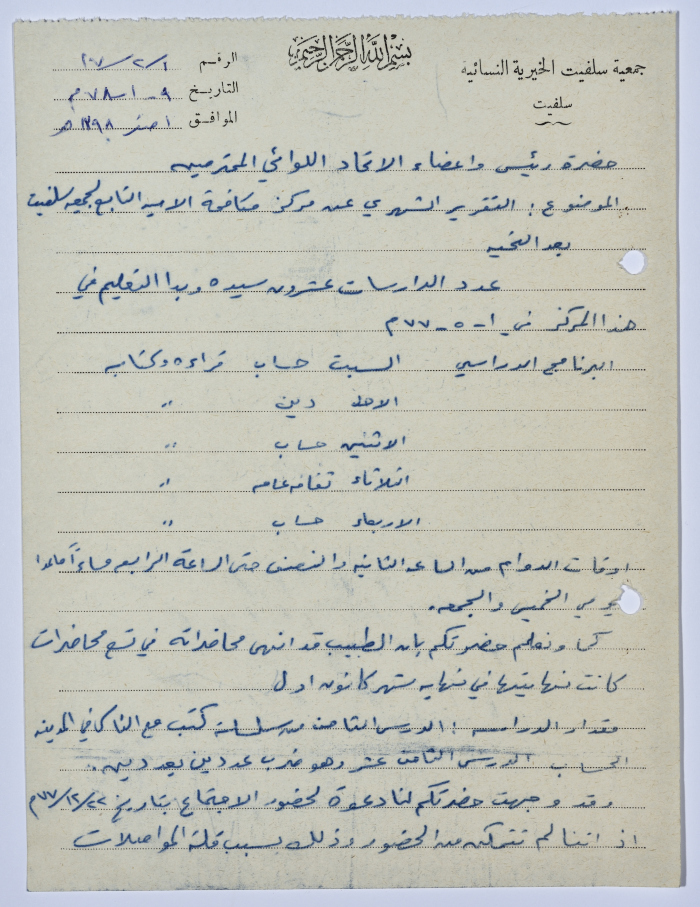 بسم الله الرحمن الرحيم
جمعية سلفيت الخيرية النسائية
سلفيت
الرقم ٢٧/٢/١
التاريخ ٩-١-٧٨م
الموافق ١ صفر ١٣٩٨هـ
حضرة رئيس واعضاء الاتحاد اللوائي المحترمين
الموضوع: التقرير الشهري عن مركز مكافحة الاميه التابع لجمعيه سلفيت
بعد التحيه
عدد الدارسات عشرون سيده وبدا التعليم في
هذا المركز في ١-٥-٧٧م
البرنامج الدراسي السبت حساب قراءه وكتابه
الاحد دين "
الاثنين حساب "
الثلاثاء ثقافه عامه "
الاربعاء حساب "
اوقات الدوام من الساعه الثانيه والنصف حتى الساعة الرابعه مساءاً ماعدا
يومي الخميس والجمعه.
كما ونعلم حضرتكم بان الطبيب قد انهى محاضراته في تسع محاضرات
كانت نهايتها في نهايه شهر كانون اول
مقدار الدراسه: الدرس الثامن من سلسلة كتب مع الناس في المدينه
الحساب الدرس الثامن عشر وهو ضرب عددين بعددين.
وقد وجهت حضرتكم لنا دعوة لحضور الاجتماع بتاريخ ٧٧/١٢/٢٢م
اذ اننا لم نتمكن من الحضور وذلك بسبب قلة المواصلات